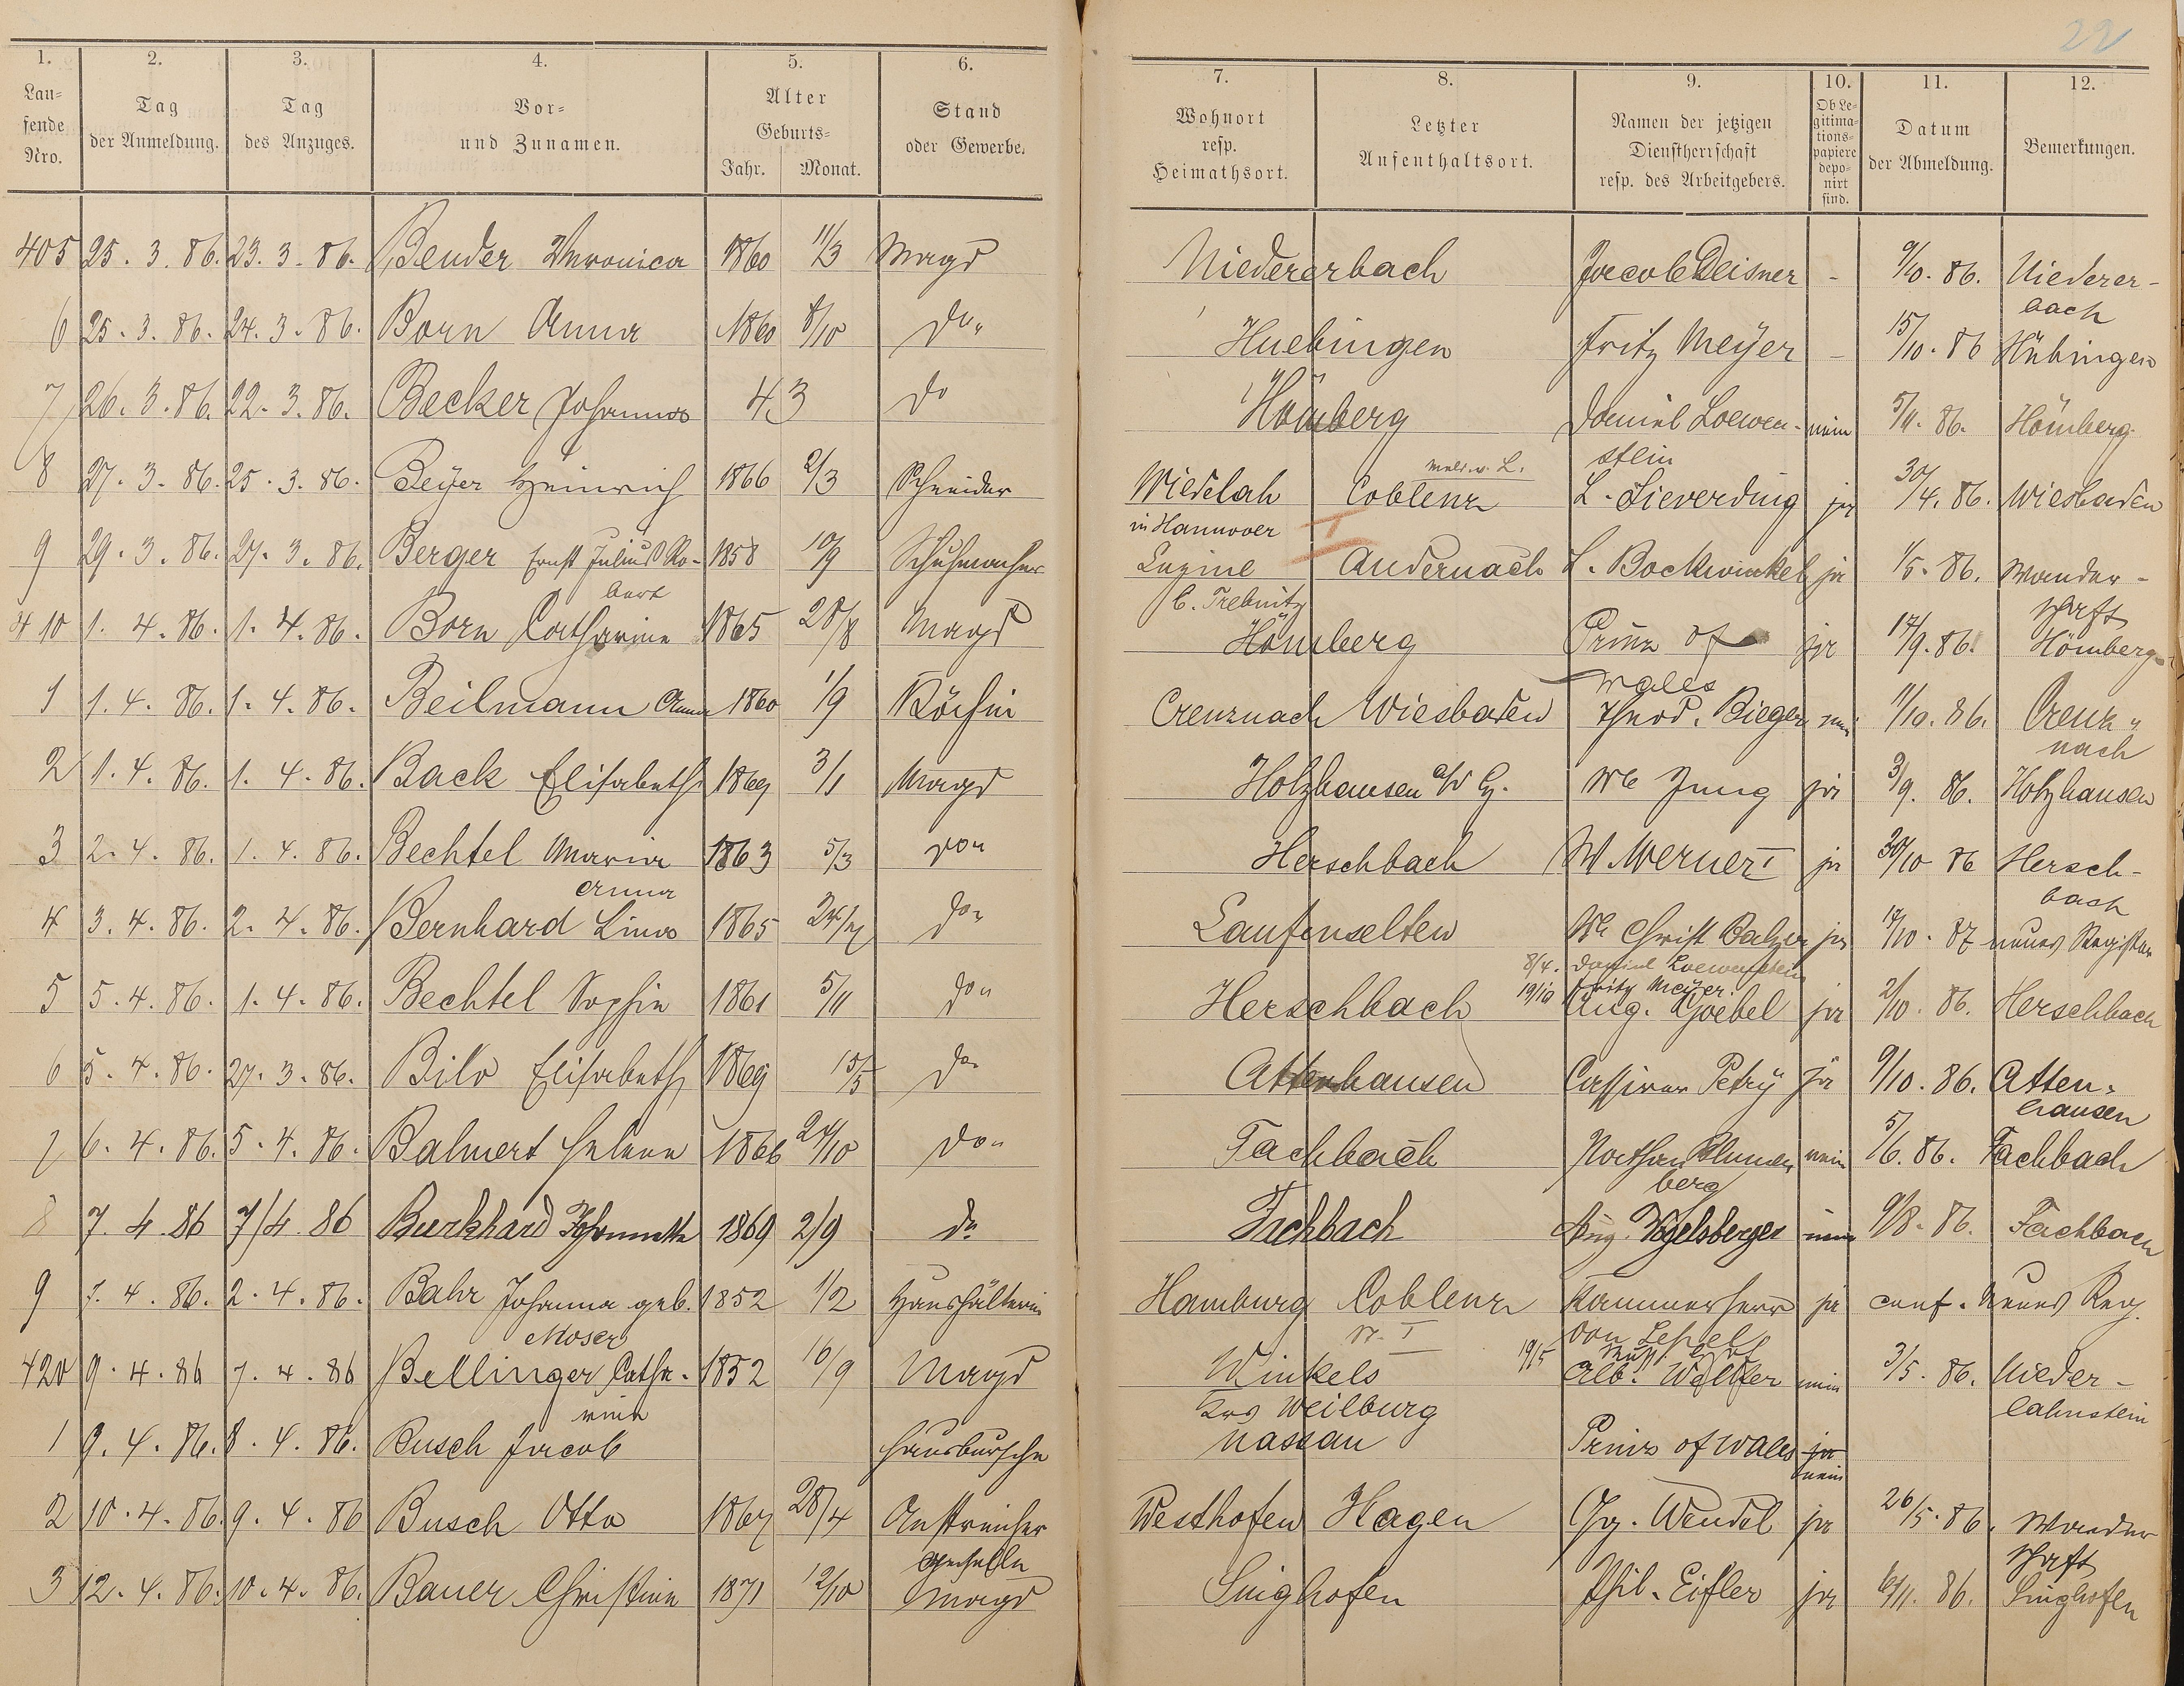 22
1. 2. 3. 4. 5. 6. 7. 8. 9. 10. 11. 12.
Lau-
fende
Nro.
Tag
der Anmeldung.
Tag
des Anzuges.
Vor-
und Zunamen.
Alter
Geburts-
Jahr. Monat.
Stand
oder Gewerbe.
Wohnort
resp.
Heimathsort.
Letzter
Aufenthaltsort.
Namen der jetzigen
Dienstherrschaft
resp. des Arbeitgebers.
Ob Le-
gitima-
tions-
papiere
depo-
nirt
sind.
Datum
der Abmeldung.
Bemerkungen.
405 25. 3. 86. 23. 3. 86. Bender Veronica 1860 11/3 Magd Niedererbach Jacob Deisner - 9/10. 86. Niederer-
bach
6 25. 3. 86. 24. 3. 86. Born Anna 1860 8/10 do. Huebingen Fritz Meÿer - 15/10. 86 Hübingen
7 26. 3. 86. 22. 3. 86. Becker Johanna 43 do Hömberg Daniel Loewen- nein 5/11. 86. Hömberg
stein
8 27. 3. 86. 25. 3. 86. Beÿer Heinrich 1866 2/3 Schneider Wiedelah Coblenz L. Sieverding ja 30/4. 86. Wiesbaden
in Hannover
9 29. 3. 86. 27. 3. 86. Berger Ernst Julius Ro- 1858 10/9 Schuhmacher Andernach L. Bockwinkel ja 1/5. 86. Wander-
bert b. Trebnitz schaft
410 1. 4. 86. 1. 4. 86. Born Catharine 1865 28/8 Magd Hömberg Prinz of ja 17/9. 86. Hömberg
Wales
1 1. 4. 86. 1. 4. 86. Beilmann Anna 1860 1/9 Köchin Creuznach Wiesbaden Theod. Bieger nein 11/10. 86. Creuz-
nach
2 1. 4. 86. 1. 4. 86. Back Elisabeth 1869 3/1 Magd Holzhausen a/d H. We Jung ja 3/9. 86. Holzhausen
3 2. 4. 86. 1. 4. 86. Bechtel Maria 1863 5/3 do. Herschbach W. Werner I ja 30/10 86 Hersch-
Anna bach
4 3. 4. 86. 2. 4. 86. Bernhard Lina 1865 24/7 do. Laufenselten We Christ Balzer ja 17/10. 87 neues Register
8/4. Daniel Loewenstein
19/10 Fritz Meÿer.
5 5. 4. 86. 1. 4. 86. Bechtel Sophie 1861 5/11 do. Herschbach Aug. Goebel ja 2/10. 86. Herschbach
6 5. 4. 86. 27. 3. 86. Bilo Elisabeth 1869 15/5 do. Attenhausen Petrÿ ja 9/10. 86. Atten-
hausen
7 6. 4. 86. 5. 4. 86. Balmert Helene 1866 24/10 do. Fachbach Nathan Blumen nein 5/6. 86. Fachbach
berg
8 7. 4. 86 7/4. 86 Burkhard Johannette 1869 2/9 do. Fachbach Aug. Vogelsberger nein 9/8. 86. Fachbach
9 7. 4. 86. 2. 4. 86. Bahr Johanna geb. 1852 1/2 Haushälterin Hamburg Coblenz Kammerherr ja conf. Neues Reg.
Moser von Lepel
420 9. 4. 86 7. 4. 86 Bellinger Catha- 1852 16/9 Magd Winkels 19/5 Alb. Walther nein 3/5. 86. Nieder-
rine Krs Weilburg lahnstein
1 9. 4. 86. 8. 4. 86. Busch Jacob Hausbursche Nassau Prinz of Wales ja
nein
2 10. 4. 86. 9. 4. 86 Busch Otto 1867 28/4 Anstreicher Westhofen Hagen Gg. Wendel ja 26/5. 86. Wander
geselle schaft
3 12. 4. 86. 10. 4. 86. Bauer Christine 1871 12/10 Magd Singhofen Phil. Eifler ja 6/11. 86. Singhofen